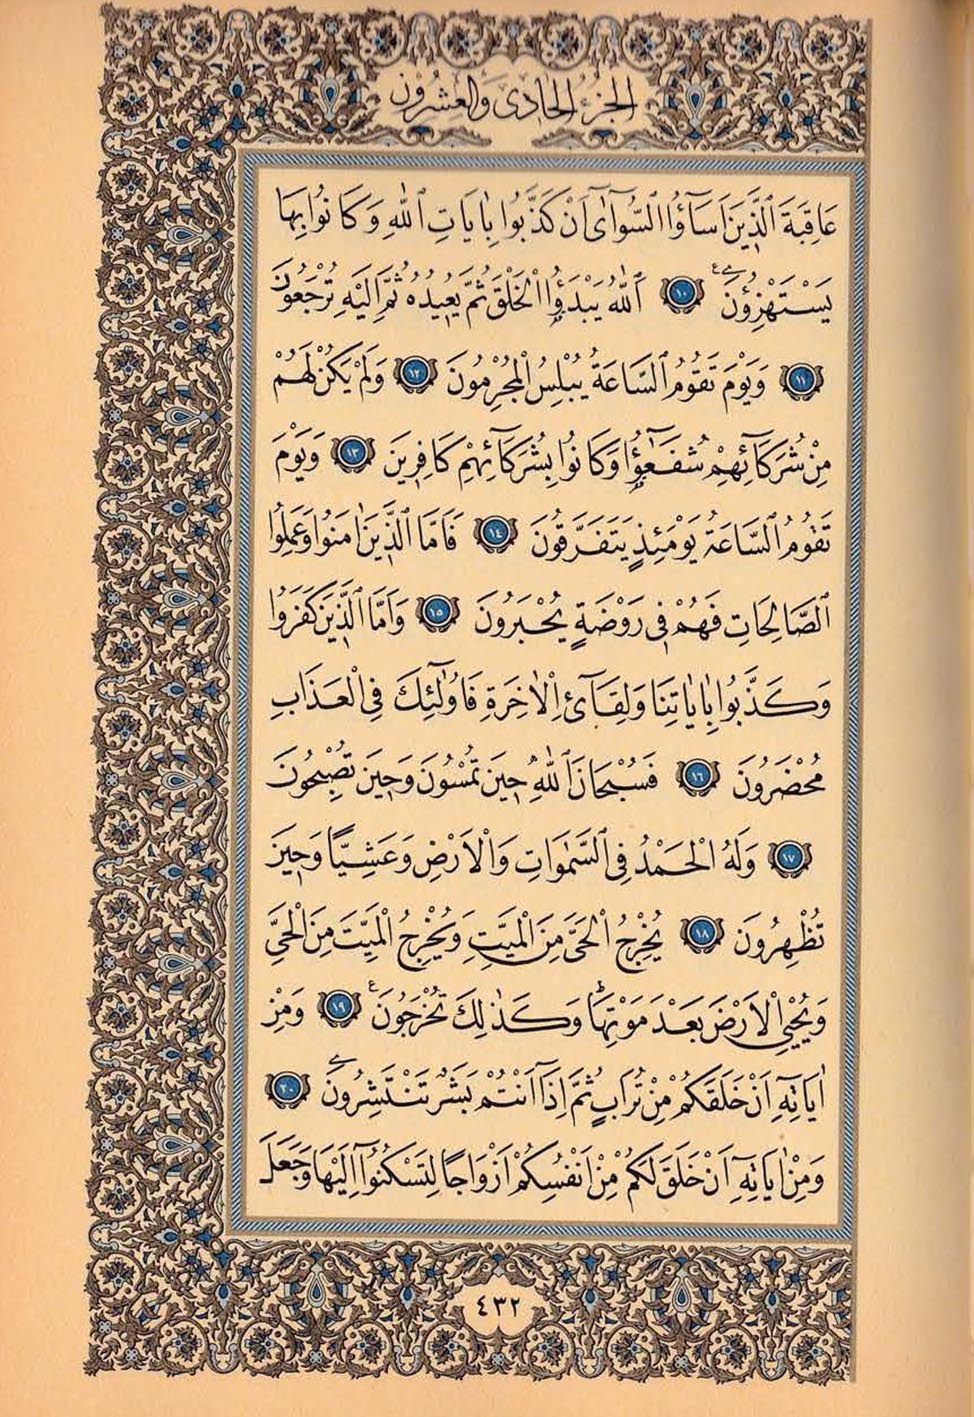 الجزء الحادى والعشرون
عَاقِبَةَ الَّذ۪ينَ اَسَٓاؤُا السُّٓوآٰى اَنْ كَذَّبُوا بِاٰيَاتِ اللّٰهِ وَكَانُوا بِهَا
يَسْتَهْزِؤُ۫نَ ﴿١٠﴾ اَللّٰهُ يَبْدَؤُ۬ا الْخَلْقَ ثُمَّ يُع۪يدُهُ ثُمَّ اِلَيْهِ تُرْجَعُونَ
﴿١١﴾ وَيَوْمَ تَقُومُ السَّاعَةُ يُبْلِسُ الْمُجْرِمُونَ ﴿١٢﴾ وَلَمْ يَكُنْ لَهُمْ
مِنْ شُرَكَٓائِهِمْ شُفَعٰٓؤُ۬ا وَكَانُوا بِشُرَكَٓائِهِمْ كَافِر۪ينَ ﴿١٣﴾ وَيَوْمَ
تَقُومُ السَّاعَةُ يَوْمَئِذٍ يَتَفَرَّقُونَ ﴿١٤﴾ فَاَمَّا الَّذ۪ينَ اٰمَنُوا وَعَمِلُوا
الصَّالِحَاتِ فَهُمْ ف۪ى رَوْضَةٍ يُحْبَرُونَ ﴿١٥﴾ وَاَمَّا الَّذ۪ينَ كَفَرُوا
وَكَذَّبُوا بِاٰيَاتِنَا وَلِقَٓائِ الْاٰخِرَةِ فَاُو۬لٰٓئِكَ فِى الْعَذَابِ
مُحْضَرُونَ ﴿١٦﴾ فَسُبْحَانَ اللّٰهِ ح۪ينَ تُمْسُونَ وَح۪ينَ تُصْبِحُونَ
﴿١٧﴾ وَلَهُ الْحَمْدُ فِى السَّمٰوَاتِ وَالْاَرْضِ وَعَشِيًّا وَح۪ينَ
تُظْهِرُونَ ﴿١٨﴾ يُخْرِجُ الْحَىَّ مِنَ الْمَيِّتِ وَيُخْرِجُ الْمَيِّتَ مِنَ الْحَىِّ
وَيُحْيِى الْاَرْضَ بَعْدَ مَوْتِهَاۜ وَكَذٰلِكَ تُخْرَجُونَ۟ ﴿١٩﴾ وَمِنْ
اٰيَاتِه۪ٓ اَنْ خَلَقَكُمْ مِنْ تُرَابٍ ثُمَّ اِذَٓا اَنْتُمْ بَشَرٌ تَنْتَشِرُونَ ﴿٢٠﴾
وَمِنْ اٰيَاتِه۪ٓ اَنْ خَلَقَ لَكُمْ مِنْ اَنْفُسِكُمْ اَزْوَاجًا لِتَسْكُنُٓوا اِلَيْهَا وَجَعَلَ
٤٣٢